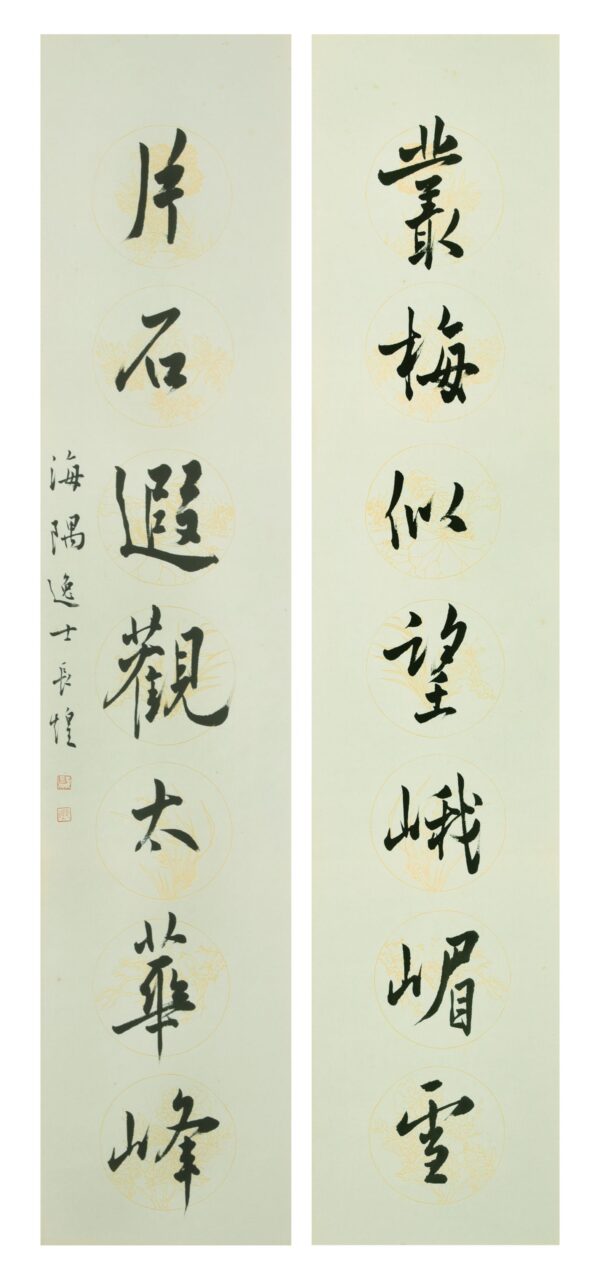 叢梅似望峨嵋雪
片石遐觀太華峰
海隅逸士長煌